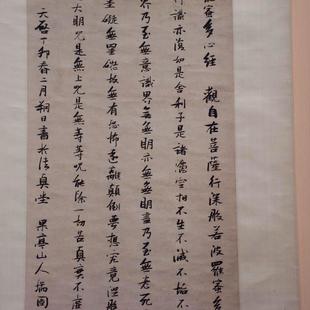 蜜多心經 觀自在菩薩行深般若波羅蜜多
行識亦復如是舍利子是諸灋空相不生不滅不垢不
界乃至無意識界無無明亦無無明盡乃至無老死
罣礙無罣礙故無有恐怖遠離顛倒夢想究竟涅槃
大明咒是無上咒是無等等咒能除一切苦真實不虛
天啓丁卯春二月朔日書於法真堂 果亭山人瑞圖